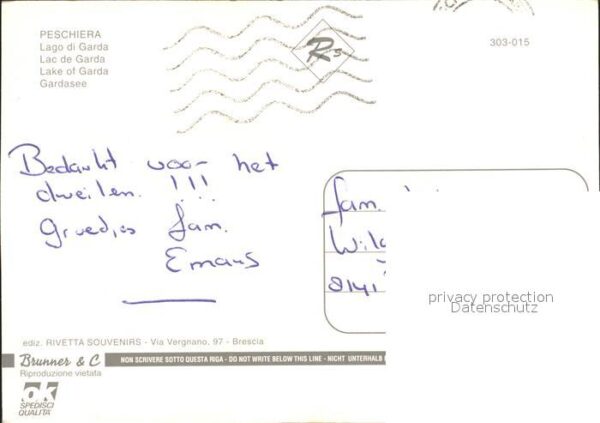 PESCHIERA
Lago di Garda
Lac de Garda
Lake of Garda
Gardasee
303-015
Bedankt voor het
dweilen. !!!
Groedjes fam.
Emans
fam.
8141
privacy protection
Datenschutz
ediz. RIVETTA SOUVENIRS - Via Vergnano, 97 - Brescia
Brunner & C
NON SCRIVERE SOTTO QUESTA RIGA - DO NOT WRITE BELOW THIS LINE - NICHT UNTERHALB
Riproduzione vietata
ok
SPEDISCI
QUALITA'